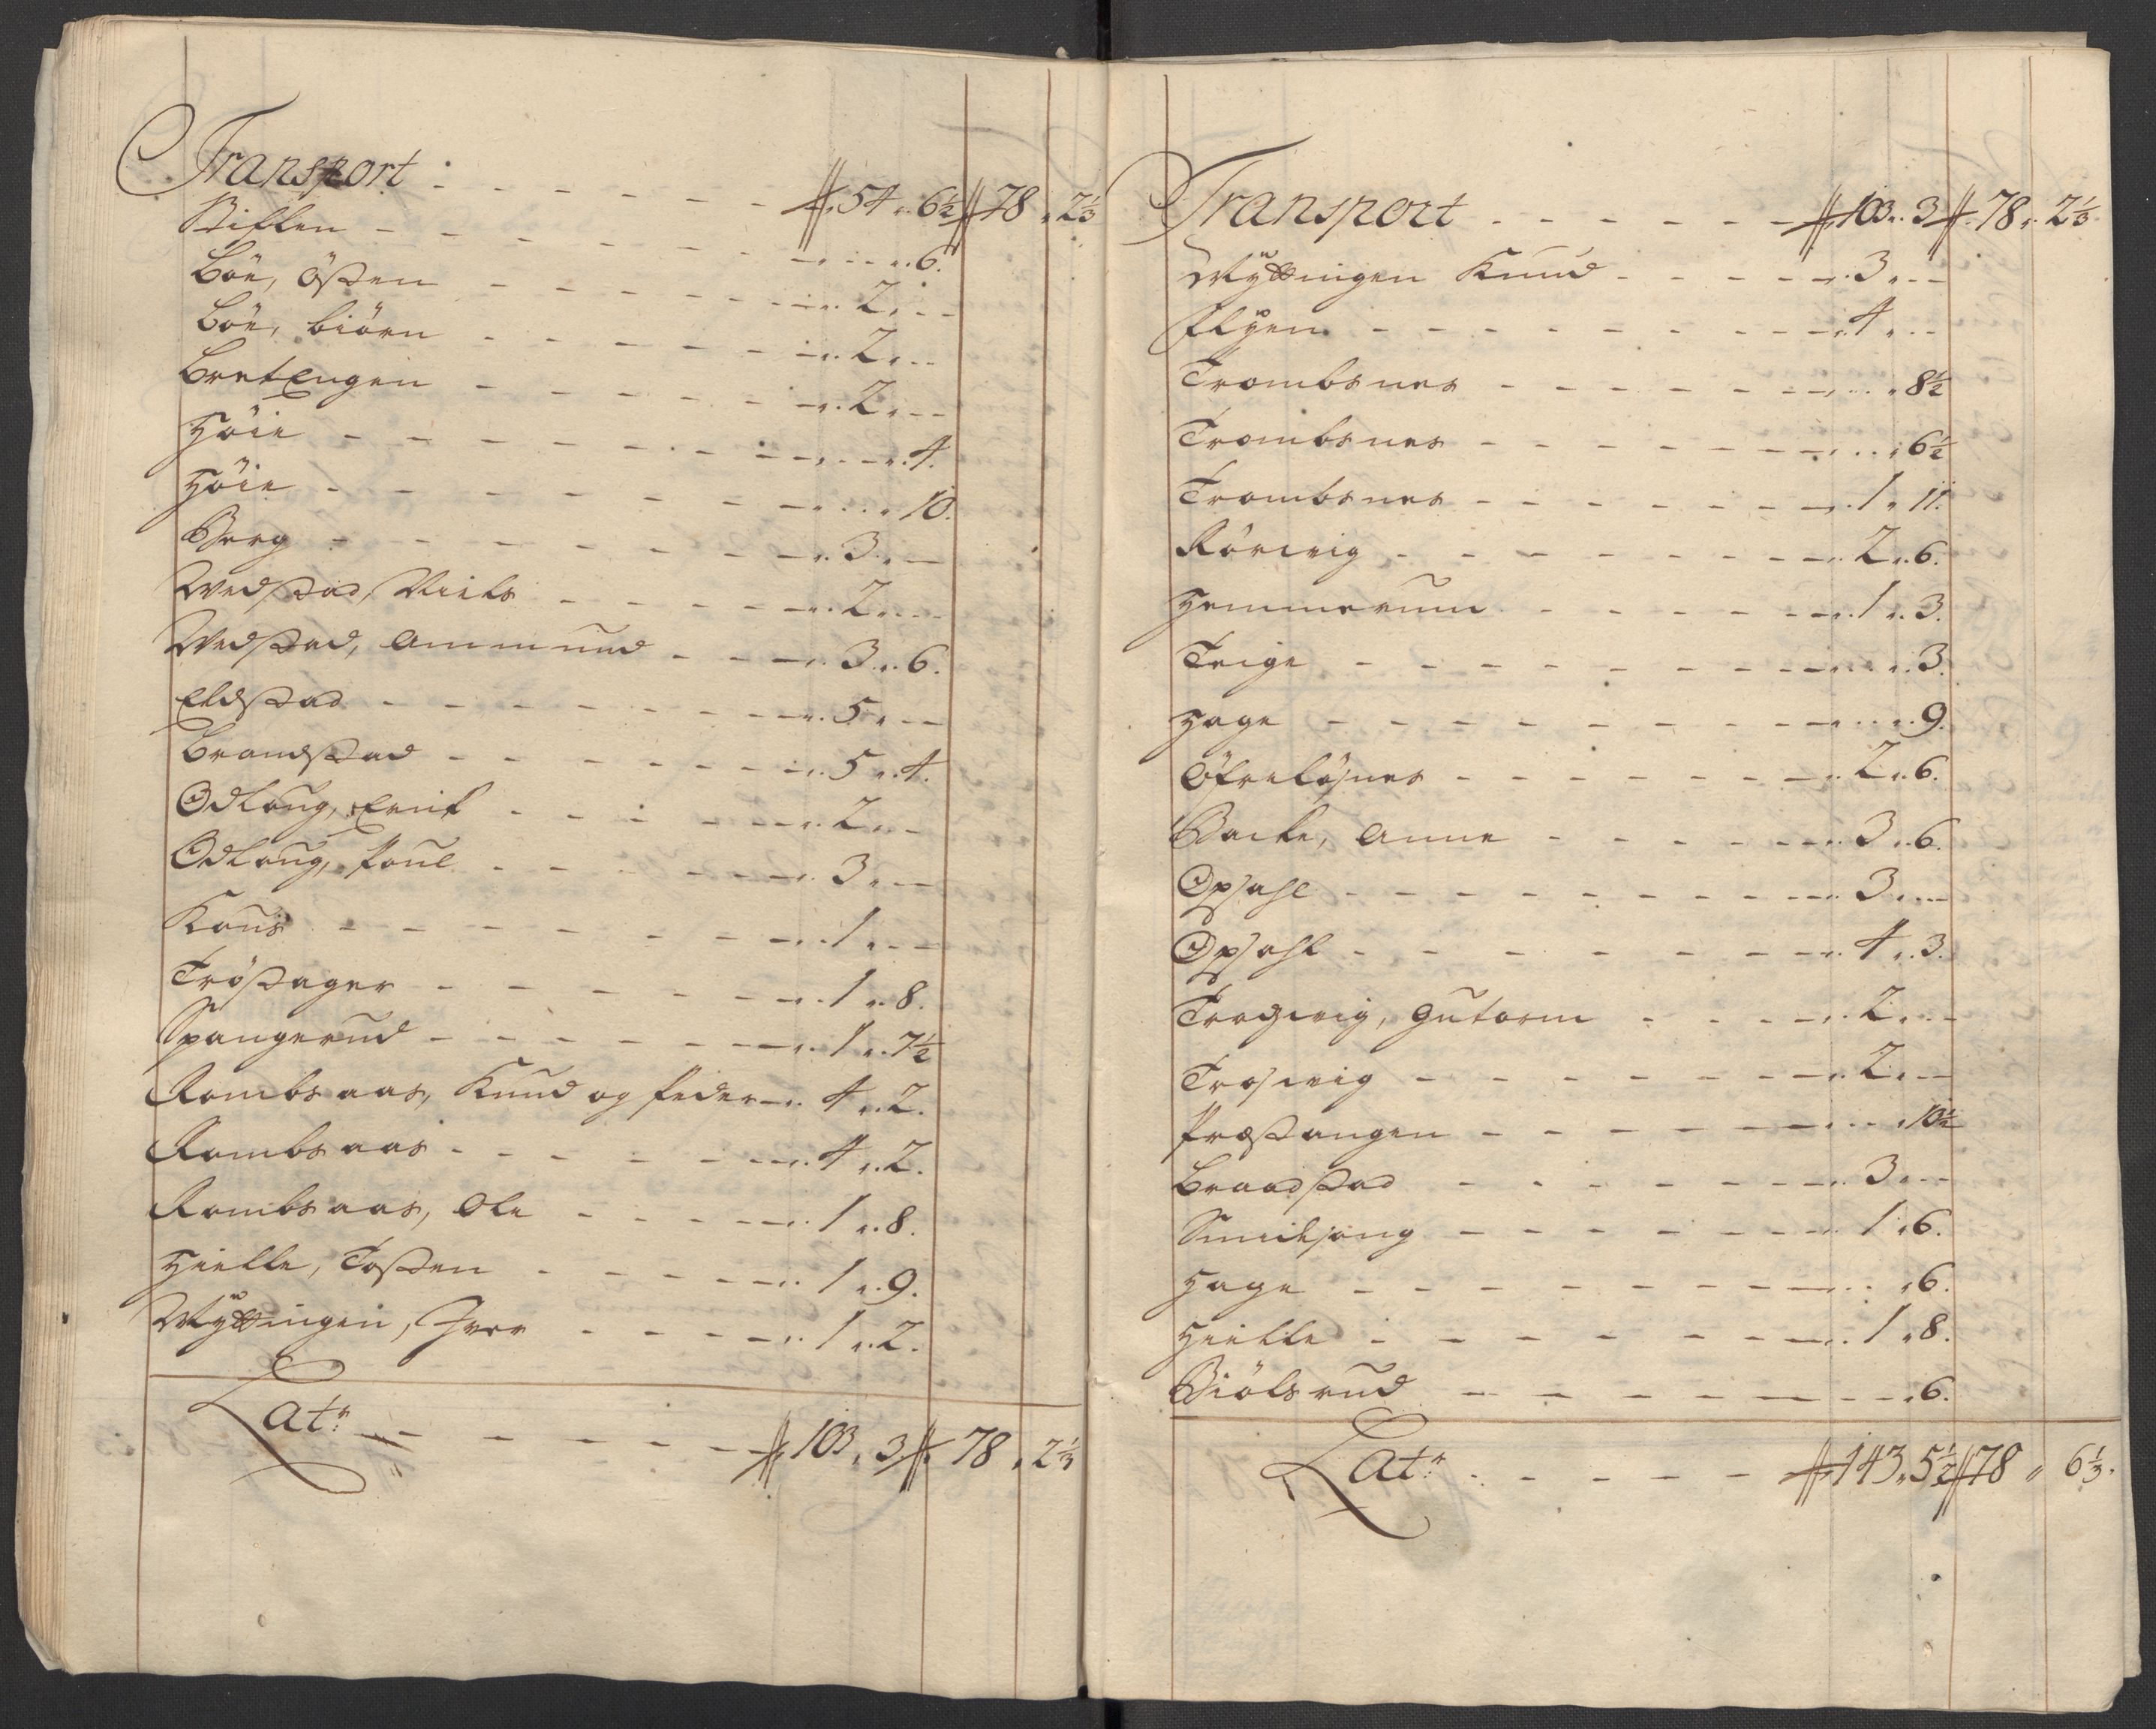 Transport ℔ 54 . 6½ ℔ 78 . 2⅓
Stiklen . . 6.
Böe, Østen . 2 . . .
Böe, biörn . 2 . . .
BretEngen . 2 . . .
Höie . . . 4.
Höie . . . 10.
Berg . 3 . .
Wedstad, Niels . 2 . . .
Wedstad, Ammund . 3 . 6.
Eldstad . 5 . . .
Brandstad . 5 . 4.
Odloug, Erik . 2 . .
Odloug, Poul . 3 . .
Kaus . 1 . . .
Tröstager . 1 . 8.
Spangerud . 1 . 7½
Rombsaas, Knud og Peder . 4 . 2.
Rambsaas . 4 . 2.
Rombsaas, Ole . 1 . 8.
Hielle, Tosten . 1 . 9.
Myttingen, Iver . 1 . 2.
Lat: ℔ 103 . 3 ℔ 78 . 2⅓
Transport ℔ 103 . 3 ℔ 78 . 2⅓
Myttingen Knud . 3 . . .
Flyen . 4 . . .
Trombsnes . . . 8½
Trombsnes . . . 6½
Trombsnes . 1 . 11.
Rörvig . 2 . 6.
Hemmerum . 1 . 3.
Teige . . . 3.
Hage . . . 9.
Öfrelösnes . 2 . 6.
Backe, Anne . 3 . 6.
Opsahl . 3 . . .
Opsahl . 4 . 3.
Troswig, Gutorm . 2 . . .
Troswig . 2 . .
Præstangen . . . 10½
Braadstad . 3 . . .
Smidsong . 1 . 6.
Hage . . . 6.
Hielle . 1 . 8.
Biölsrud . . . 6.
Lat: ℔ 143 . 5½ ℔ 78 . 6⅓.